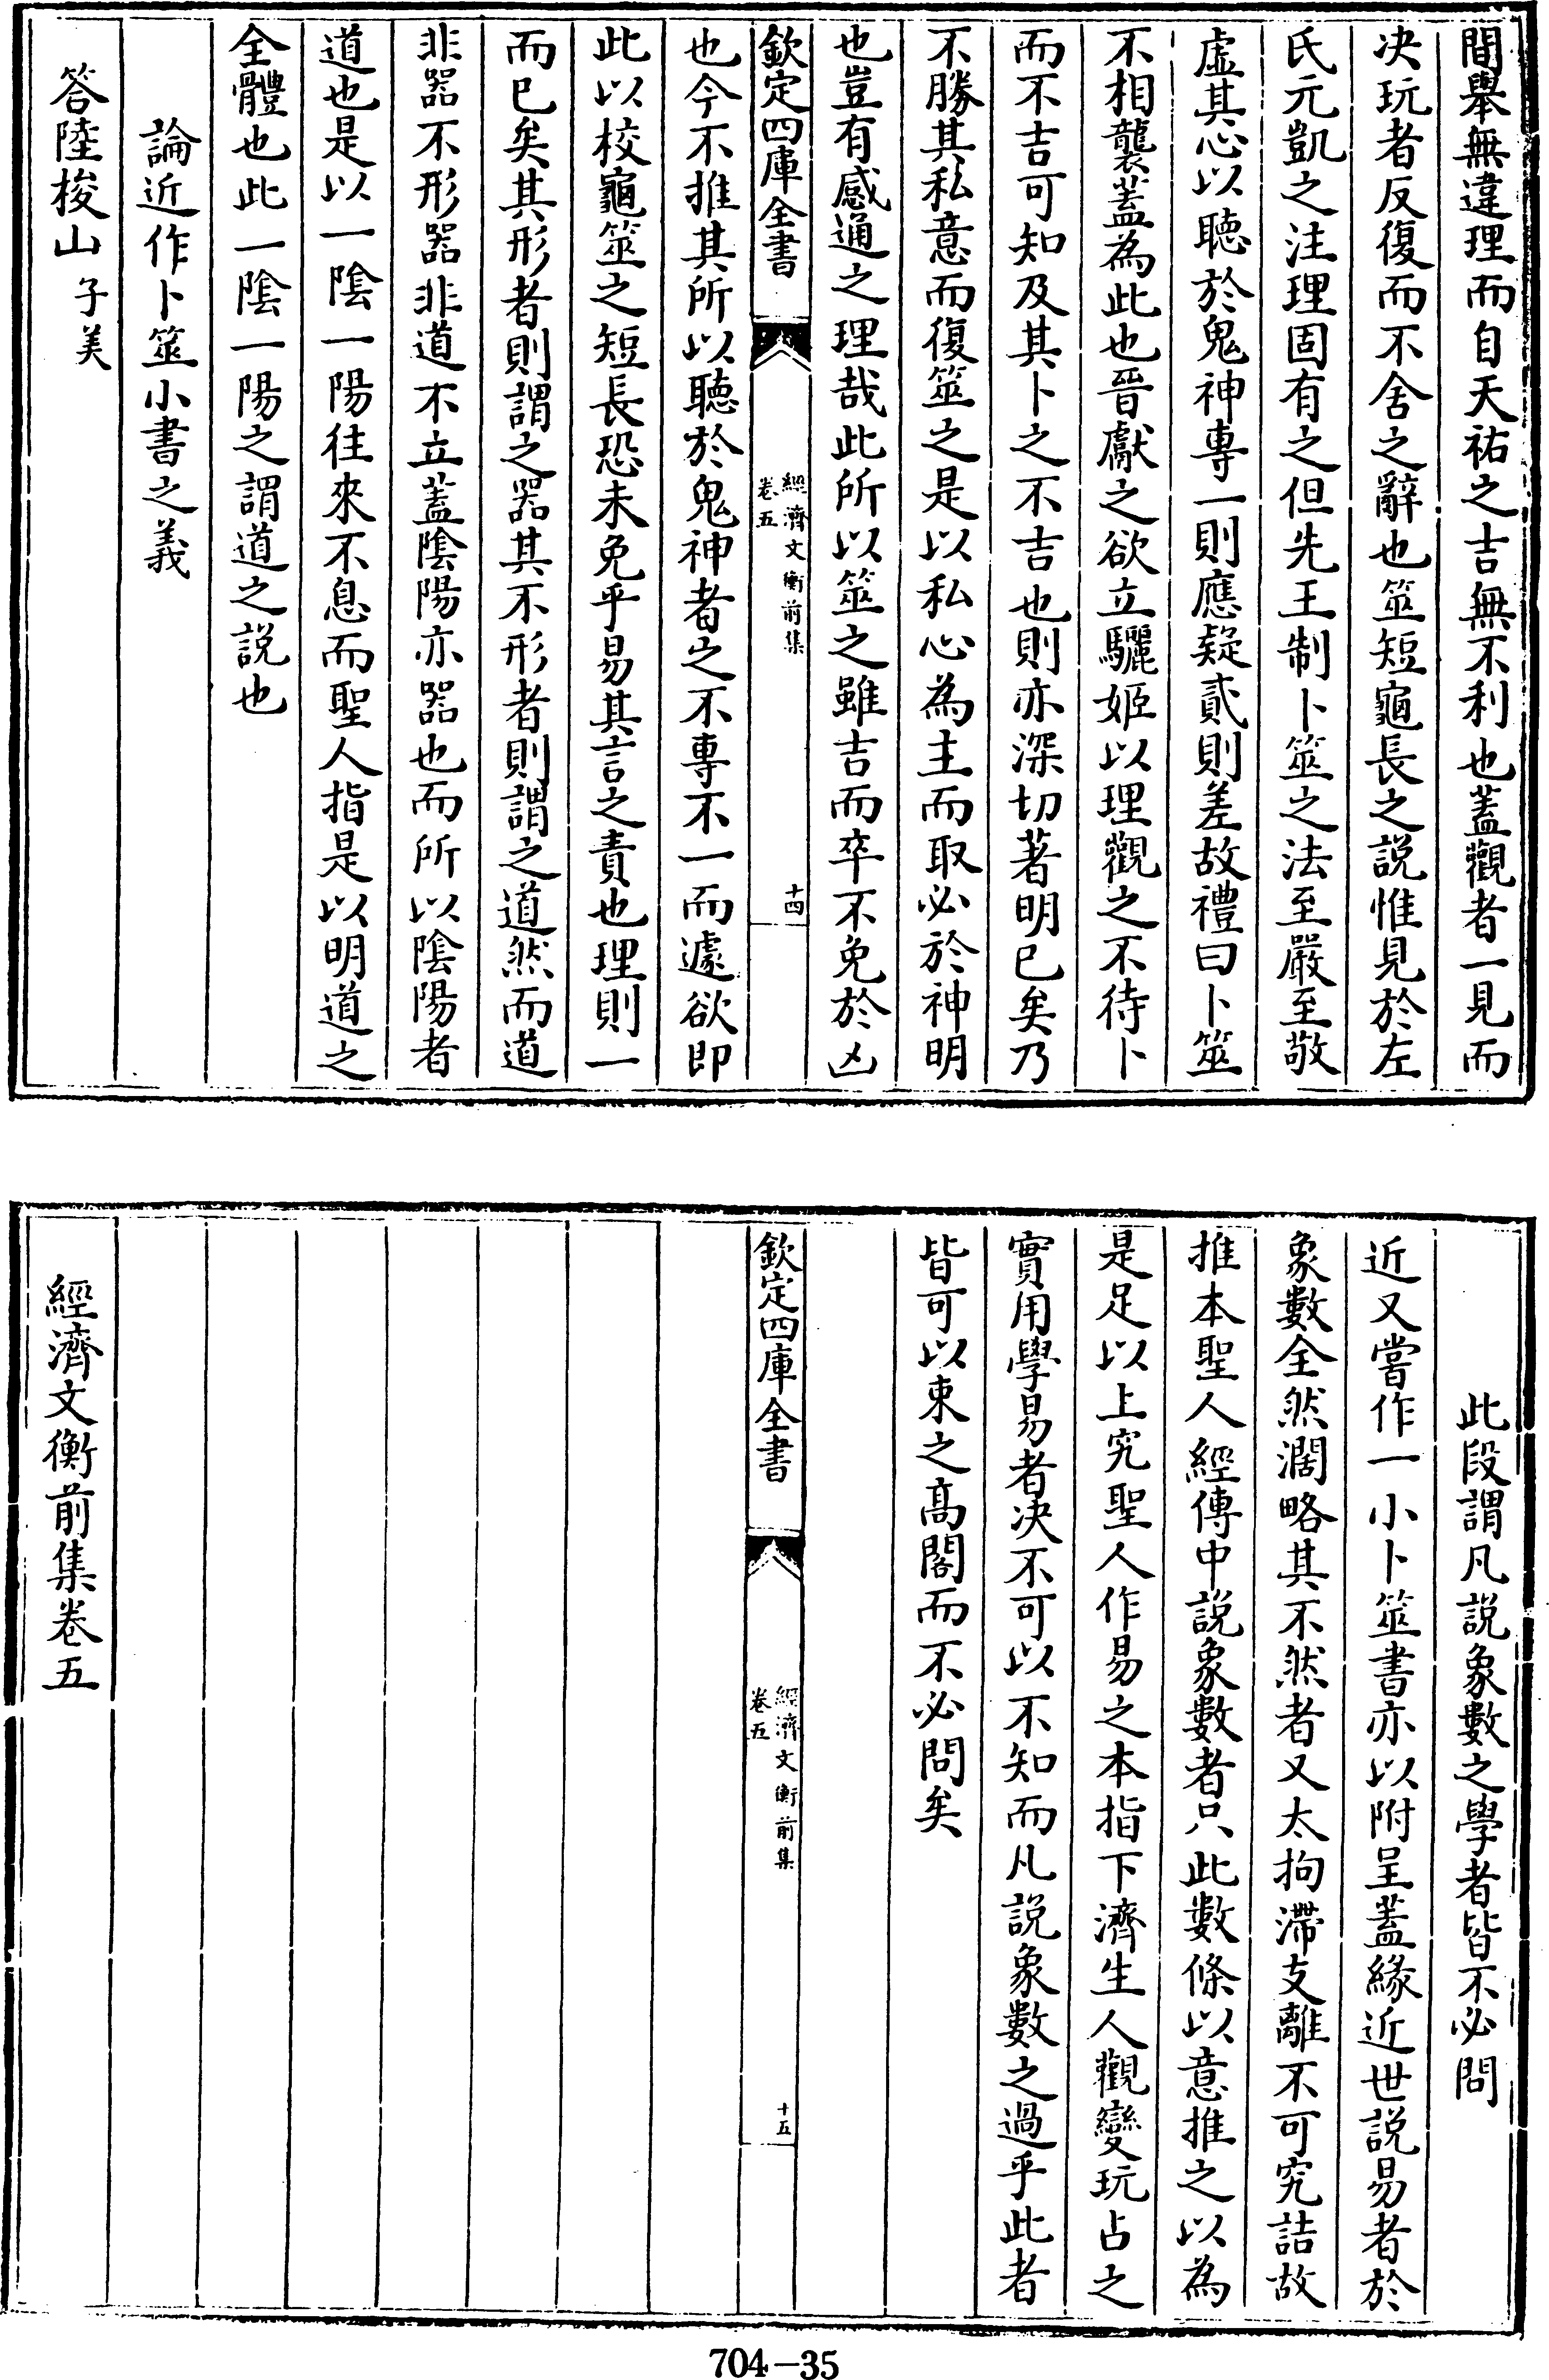 間舉無違理而自天祐之吉無不利也蓋觀者一見而
决玩者反復而不舍之辭也筮短龜長之說惟見於左
氏元凱之注理固有之但先王制卜筮之法至嚴至敬
虛其心以聽於鬼神專一則應疑貳則差故禮曰卜筮
不相襲蓋為此也晉獻之欲立驪姬以理觀之不待卜
而不吉可知及其卜之不吉也則亦深切著明已矣乃
不勝其私意而復筮之是以私心為主而取必於神明
也豈有感通之理哉此所以筮之雖吉而卒不免於凶
欽定四庫全書
經濟文衡前集
卷五
十四
也今不推其所以聽於鬼神者之不專不一而遽欲即
此以校龜筮之短長恐未免乎易其言之責也理則一
而已矣其形者則謂之器其不形者則謂之道然而道
非器不形器非道不立蓋陰陽亦器也而所以陰陽者
道也是以一陰一陽往來不息而聖人指是以明道之
全體也此一陰一陽之謂道之說也
論近作卜筮小書之義
答陸梭山子美
此段謂凡說象數之學者皆不必問
近又嘗作一小卜筮書亦以附呈蓋緣近世說易者於
象數全然濶略其不然者又太拘滯支離不可究詰故
推本聖人經傳中說象數者只此數條以意推之以為
是足以上究聖人作易之本指下濟生人觀變玩占之
實用學易者决不可以不知而凡說象數之過乎此者
皆可以束之高閣而不必問矣
欽定四庫全書
經濟文衡前集
卷五
十五
經濟文衡前集卷五
704-35